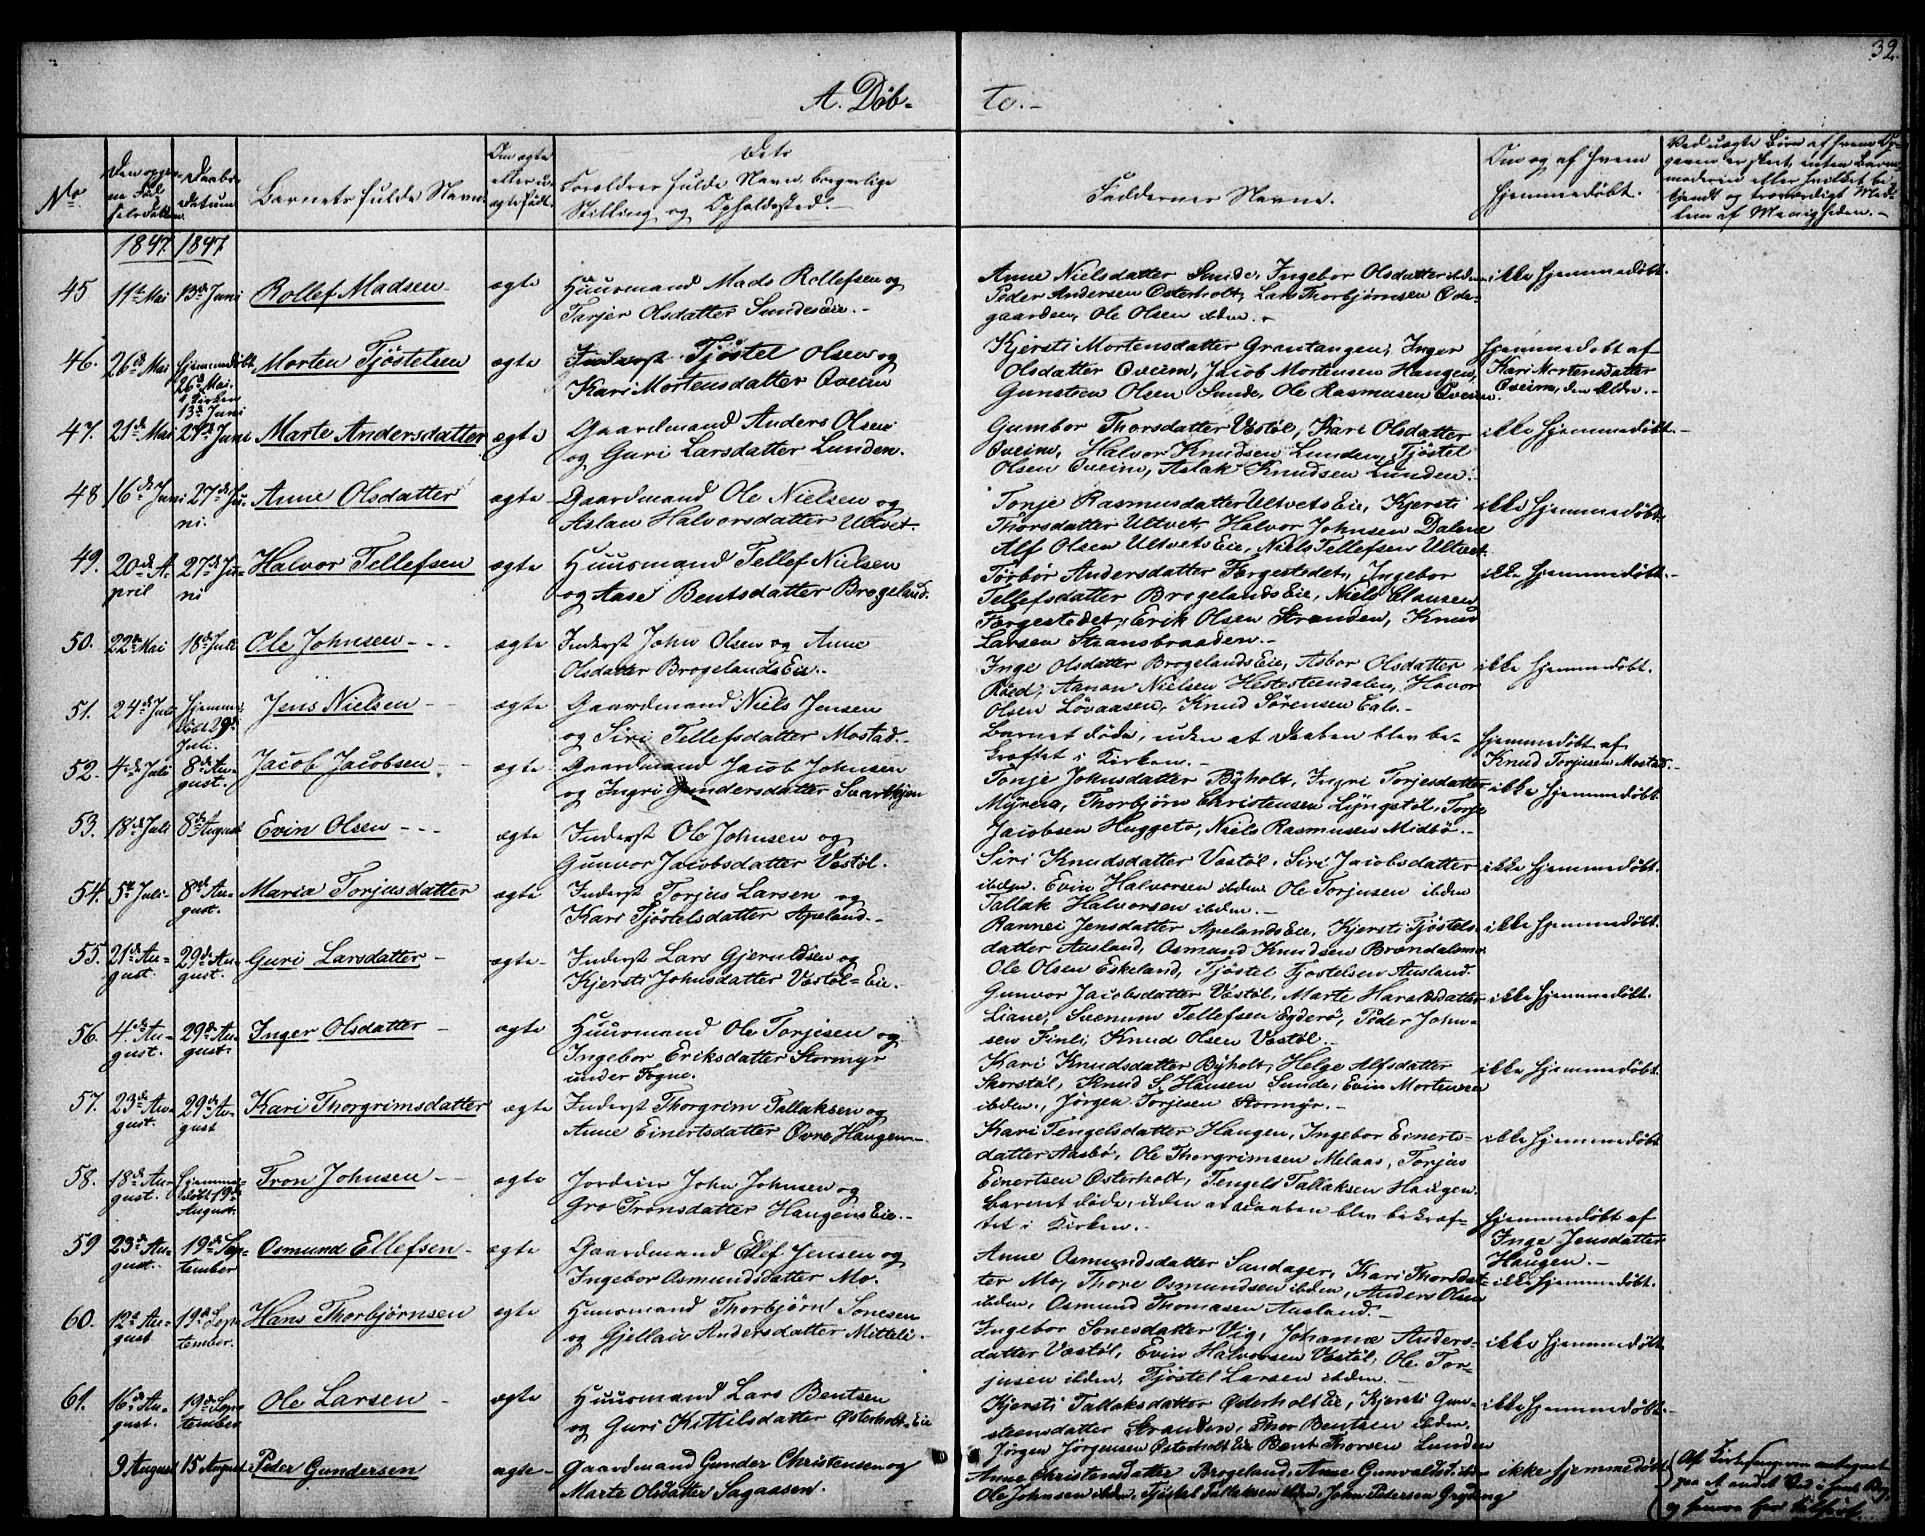 32.
A. Døb-
te.-
No
Barnets fulde Navn.
Foreldres fulde Navn, borgerlige
Stilling og Opholdssted.-
Faddernes Navne.
Om og af hvem
hjemmedøbt.
1847. 1847
45 11te Mai 13de Juni Rollef Madsen ægte Huusmand Mads Rollefsen og
Tarjer Olsdatter SundesEie.-
Anne Nielsdatter Sunde, Ingebor Olsdatter ibdem ikke hjemmedøbt.
Peder Andersen Osterholt, Lars Thorbjørnsen Ode-
gaarden, Ole Olsen ibdm.-
46. 26de Mai hjemmedøbt
26de Mai.
i Kirken
13de Juni
Morten Tjøstelsen ægte Inderst Tjøstel Olsen og
Kari Mortensdatter Oveim
Kjersti Mortensdatter Grautangen, Inger
Olsdatter Oveim, Jacob Mortensen Haugen,
Gunsteen Olsen Sunde, Ole Rasmusen Oveim.
hjemmedøbt af
Kari Mortensdatter
Oveim, den Ældre.-
47. 21de Mai 27de Juni Marte Andersdatter ægte Gaardmand Anders Olsen
og Guri Larsdatter Lunden.
Gumbor Thorsdatter Vestøl, Kari Olsdatter ikke hjemmedøbt.-
Oveim, Halvor Knudsen Lunden, Tjøstel
Olsen Oveim, Aslak Knudsen Lunden.
48 16de Juni 27de Ju-
ni. Anne Olsdatter ægte Gaardmand Ole Nielsen og
Aslau Halvorsdatter Ultvet.
Tonje Rasmusdatter UltvetsEie, Kjersti ikke hjemmedøbt.
Thorsdatter Ultvet, Halvor Johnsen Dalene
Alf Olsen UltvetsEie, Niels Tellefsen Ultvet.
49. 20de A-
pril 27de Ju-
ni Halvor Tellefsen ægte Huusmand Tellef Nielsen
og Aase Bentsdatter Brogeland.
Torbor Andersdatter Fargestedet, Ingebor ikke hjemmedøbt.-
Tellefsdatter BrogelandsEie, Niels Clausen
Fargestedet, Erik Olsen Stranden, Knud
Larsen Stransbraaden.-
50. 22de Mai 18de Juli Ole Johnsen ægte Inderst John Olsen og Anne
Olsdatter BrogelandsEie.-
Inge Olsdatter BrogelandsEie, Asbor Olsdatter ikke hjemmedøbt.
Røed, Aanon Nielsen Hestesteendalen, Havor
Olsen Løvaasen, Knud Sørensen Eals.-
51. 24de Juli hjemme-
døbt 29de
Juli. Jens Nielsen ægte Gaardmand Niels Jensen
og Siri Tellefsdatter Mostad.-
Barnet døde, uden at Daaben blev be-
kræftet i Kirken.-
hjemmedøbt af
Knud Torjusen Mostad.-
52. 4de Juli 8de Au-
gust. Jacob Jacobsen ægte Gaardmand Jacob Johnsen
og Ingri Gundersdatter Svartkjen
Tonje Johnsdatter Byholt, Ingri Torjesdatter ikke hjemmedøbt.
Myrene, Thorbjørn Christensen Lyngstøl, Torje
Jacobsen Huggeto, Niels Rasmusen Midbø.-
53. 18de Juli 8de August Evin Olsen ægte Inderst Ole Johnsen og
Gunvor Jacobsdatter Vestøl.
Siri Knudsdatter Vestøl, Siri Jacobsdatter ikke hjemmedøbt.
ibdem. Evin Halvorsen ibdem Ole Torjusen ibdem
Tallak Halvorsen ibdem.-
54. 5te Juli 8de Au-
gust. Maria Torjusdatter ægte Inderst Torjus Larsen og
Kari Tjøstelsdatter Apeland.-
Rannei Jensdatter ApelandsEie, Kjersti Tjøstels- ikke hjemmedøbt.
datter Ausland, Osmund Knudsen Brændalsmo
Ole Olsen Eskeland, Tjøstel Tjøstelsen Ausland.
55. 21de Au-
gust. 29de Au-
gust. Guri Larsdatter ægte Inderst Lars Gjeruldsen og
Kjersti Johnsdatter Vestøl-Eie.
Gunvor Jacobsdatter Vestøl, Marte Haraldsdatter ikke hjemmedøbt.
Liane, Tellefsen Egderø, Peder John-
sen Finli, Knud Olsen Vestøl.-
56. 4de Au-
gust. 29de Au-
gust. Inger Olsdatter ægte Huusmand Ole Torjesen og
Ingebor Eriksdatter Stormyr
under Fogne.
Kari Knudsdatter Byholt, Helge Alfsdatter ikke hjemmedøbt.
Storstøl, Knud S. Hansen Sunde, Evin Mortensen
ibdem., Jørgen Torjesen Stormyr.-
57. 23de Au-
gust. 29de Au-
gust Kari Thorgrimsdatter ægte Inderst Thorgrim Tallaksen og
Anne Einertsdatter Øvre Haugen.-
Kari Tengelsdatter Haugen, Ingebor Einerts- ikke hjemmedøbt
datter Aasbø, Ole Thorgrimsen Melaas, Torjus
Einertsen Osterholt, Tengels Tallaksen Haugen.
58. 18de Au-
gust. hjemme-
døbt 19de
August. Tron Johnsen ægte Jordeier John Johnsen og
Gro Tronsdatter HaugensEie.-
Barnet døde, uden at Daaben blev bekræf-
tet i Kirken.-
hjemmedøbt af
Inge Jensdatter
Haugen.-
59 23de Au-
gust. 19de Sep-
tember Osmund Ellefsen ægte Gaardmand Ellef Jensen og
Ingebor Osmundsdatter Mo.
Anne Osmundsdatter Sandager, Kari Thorsdat-
ter Mo, Thore Osmundsen ibdem, Anders Olsen ikke hjemmedøbt.
ibdem, Osmund Thomasen Ausland.-
60. 12te Au-
gust 19de Sep-
tember. Hans Thorbjørnsen ægte Huusmand Thorbjørn Sonesen
og Gjellau Andersdatter Mitteli.
Ingebor Sonesdatter Vig, Johanne Anders- ikke hjemmedøbt
datter Vestøl, Evin Halvorsen Vestøl, Ole Tor-
jusen ibdem, Tjøstel Larsen ibdem.-
61. 16de Au-
gust. 19de Sep-
tember Ole Larsen ægte Huusmand Lars Bentsen
og Guri Kittilsdatter Østerholt-Eie
Kjersti Tallaksdatter ØsterholtEie, Kjersti Gun- ikke hjemmedøbt.
steensdatter Stranden, Thor Bentsen ibdem,
Jørgen Jørgensen ØsterholtEie Bent Thorsen Lunden
9 August 15 August Peder Gundersen ægte Gaardmand Gunder Christensen og
Marte Olsdatter Sagaasen.
Anne Christensdatter Brogeland, Anne Gunvaldsd. ibdm ikke hjemmedøbt
Ole Johnsen ibdem, Tjøstel Tallaksen ibdem, John Petersen Gryting